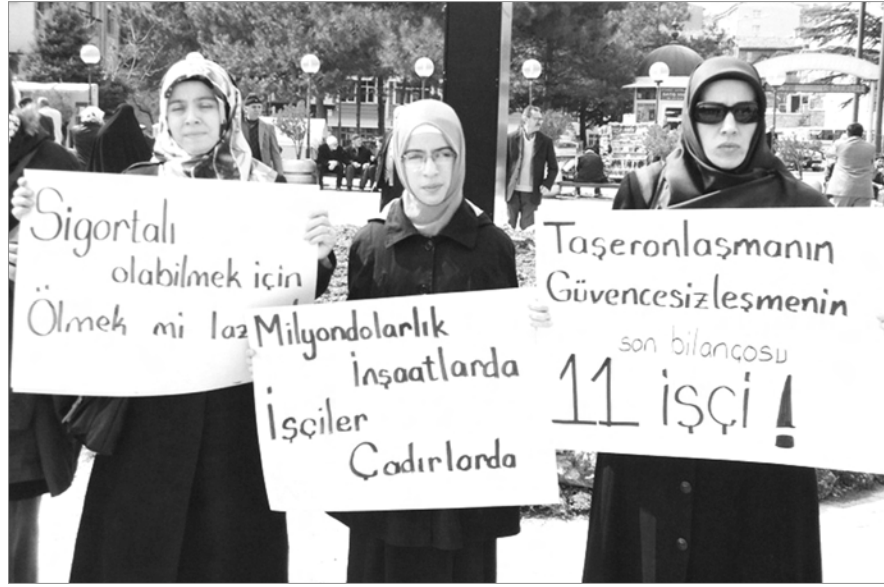 Sigortalı
olabilmek için
Ölmek mi
Milyondolarlık
İnşaatlarda
İşçiler
Çadırlarda
Taşeronlaşmanın
Güvencesizleşmenin
son bilançosu
11 işçi !